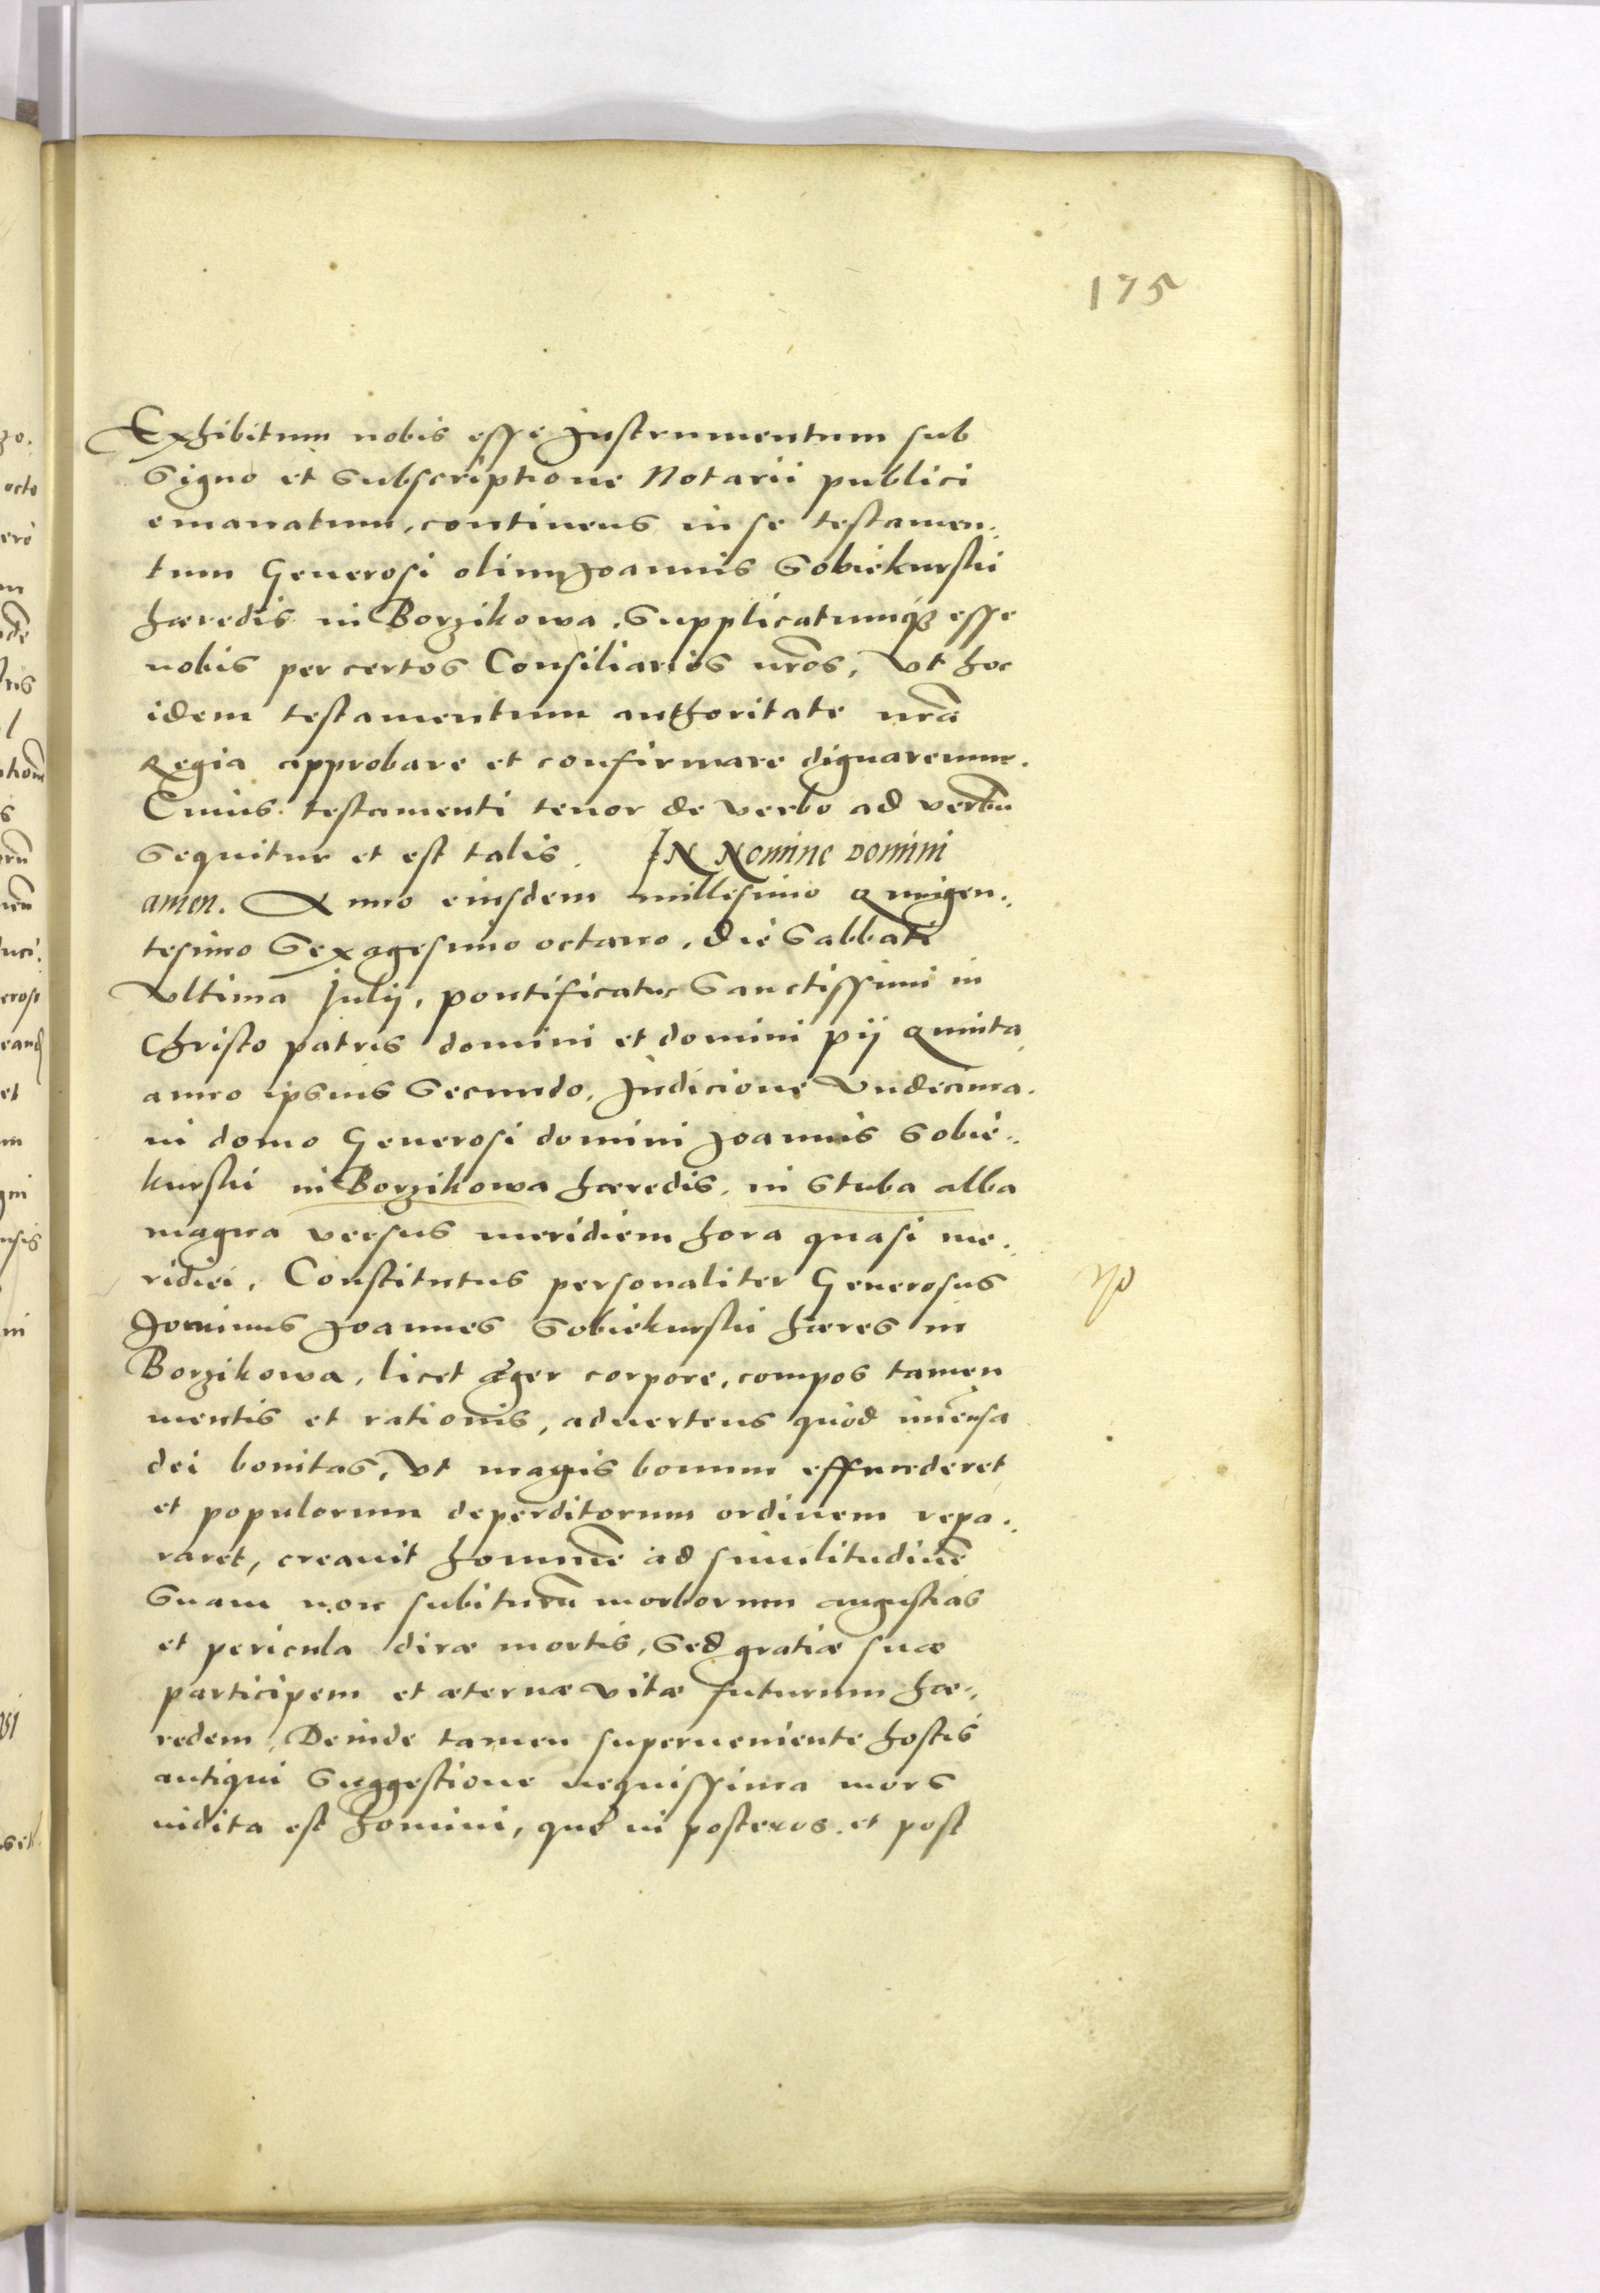 175
Exhibitum nobis esse Instrumentum sub
Signo et Subscriptione Notarii publici
emanatum, continens in se testamen„
tum Generosi olim Joannis Sobiekurski
hæredis in Borzikowa. Supplicatumq3 esse
nobis per certos Consiliarios nr̃os, Vt hoc
idem testamentum authoritate nr̃a
Regia approbare et confirmare dignaremur.
Cuius testamenti tenor de verbo ad verbũ
Sequitur et est talis. IN Nomine Domini
amen. Anno eiusdem millesimo quingen„
tesimo Sexagesimo octauo, die Sabbati
Vltima Julij, pontificatus Sanctissimi in
Christo patris domini et domini pij quinta
anno ipsius Secundo. Indicione Vndecima.
in domo Generosi domini Joannis Sobie„
kurski in Borzikowa hæredis, in Stuba alba
magna versus meridiem hora quasi me„
ridiei. Constitutus personaliter Generosus
Dominus Joannes Sobiekurski hæres in
Borzikowa, licet æger corpore, compos tamen
mentis et rationis, aduertens quòd im̃ensa
dei bonitas, Vt magis bonum effunderet
et populorum deperditorum ordinem repa„
raret, creauit hominẽ ad similitudinẽ
Suam non subiturũ morborum angustias
et pericula diræ mortis, Sed gratiæ suæ
participem et æternæ vitæ futurum hæ„
redem, Deinde tamen superueniente hostis
antiqui Suggestione nequissima mors
indita est homini, que in posteros et post